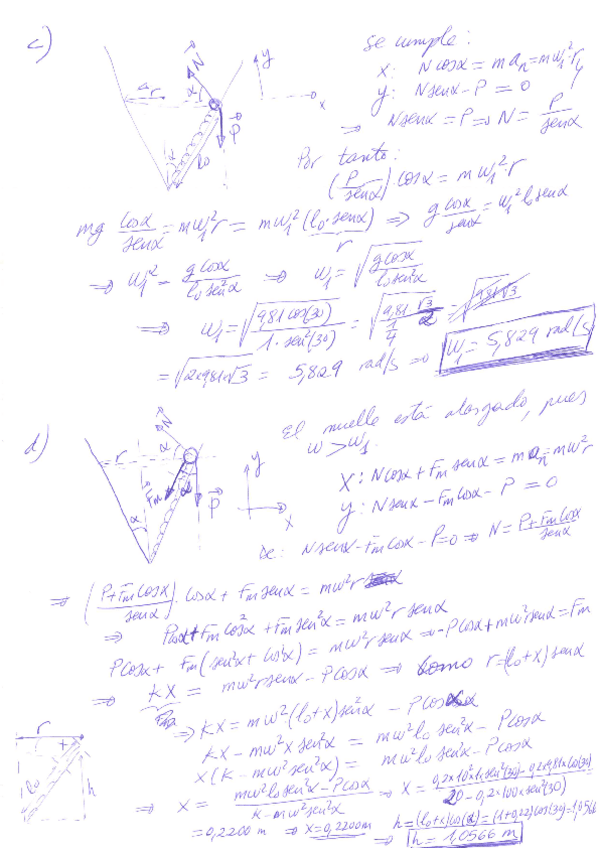 c)
N
y
α
r
x
P
α
l₀
Se cumple:
x: N cosα = m aₙ = m ω₁²·r
y: N senα - P = 0
⇒ N senα = P ⇒ N = P/senα
Por tanto:
(P/senα) cosα = m ω₁²·r
mg cosα/senα = m ω₁² r = m ω₁² (l₀·senα) ⇒ g cosα/senα = ω₁² l₀ senα
r
⇒ ω₁² = g cosα/l₀ sen²α ⇒ ω₁ = √(g cosα/l₀ sen²α)
⇒ ω₁ = √(9,81 cos(30)/1·sen²(30)) =
= √(2×9,81×√3) = 5,829 rad/s ⇒ ω₁ = 5,829 rad/s
d)
El muelle está alargado, pues
ω > ω₁.
N
α
r
y
Fm
α
P
x
α
X: N cosα + Fm senα = m aₙ = m ω² r
y: N senα - Fm cosα - P = 0
De: N senα - Fm cosα - P = 0 ⇒ N = P + Fm cosα/senα
⇒ (P + Fm cosα/senα)·cosα + Fm senα = m ω² r
⇒ P cosα + Fm cos²α + Fm sen²α = m ω² r senα
P cosα + Fm (sen²α + cos²α) = m ω² r senα ⇒ -P cosα + m ω² r senα = Fm
⇒ KX = m ω² r senα - P cosα ⇒ Como r = (l₀+x) senα
Fm
⇒ KX = m ω² (l₀+x) sen²α - P cosα
KX - m ω² x sen²α = m ω² l₀ sen²α - P cosα
X (K - m ω² sen²α) = m ω² l₀ sen²α - P cosα
⇒ X = m ω² l₀ sen²α - P cosα/K - m ω² sen²α ⇒ X = 0,2×10²×1×sen²(30) - 0,2×9,81×cos(30)/20 - 0,2×100×sen²(30)
r
h
= 0,2200 m ⇒ X = 0,2200 m ⇒ h = (l₀+x) cos(α) = (1+0,22) cos(30) = 1,0566
h = 1,0566 m